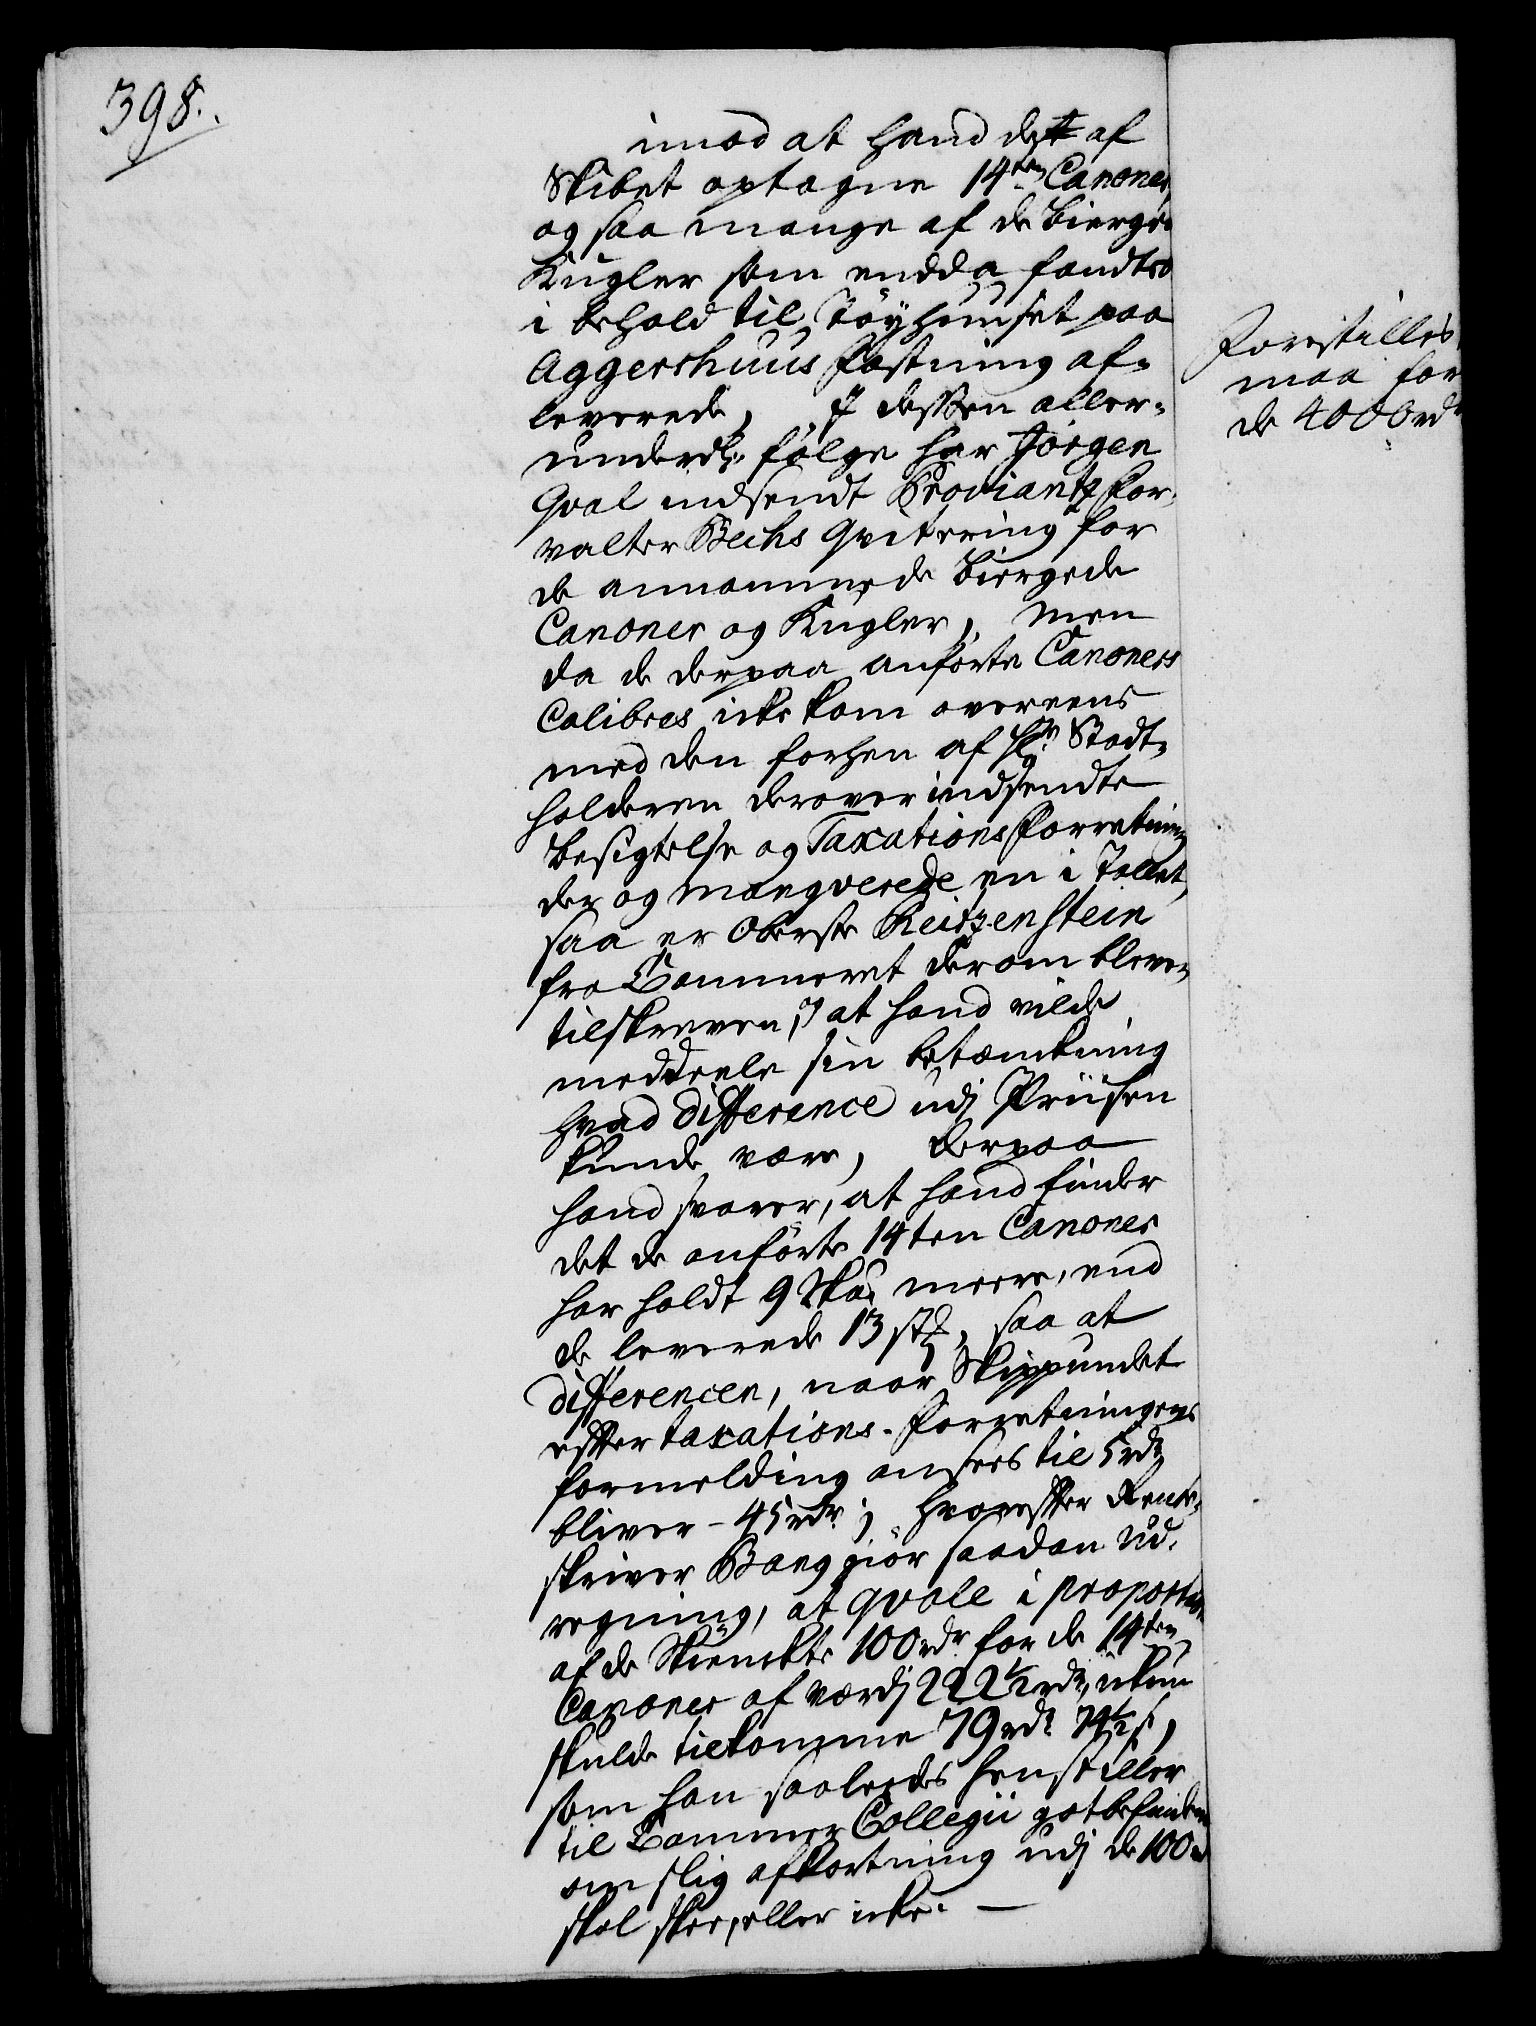 398.
imod at hand de af
Skibet optagne 14ten Canoner,
og saa mange af de biergede
Kugler som endda fandtes
i behold til Töyhuuset paa
Aggershuus Fæstning af-
leverede, J dessen aller-
underd: fölge har Jörgen
Qval indsendt Proviantz For-
valter Bechs Qvitering for
de annammede biergede
Canoner og Kugler, men
da de derpaa anförte Canoners
Calibres icke kom overeens
med den forhen af Hr: Stadt-
holderen derover indsendte
Besigtelse og Taxations Forretning
der og mangverede en i Tallet,
saa er Oberste Reitzenstein
fra Cammeret derom bleven
tilskreven, at hand vilde
meddeele sin betænkning
hvad difference udj Priisen
kunde være, derpaa
hand svarer, at hand finder
det de anförte 14ten Canoner
har holdt 9 Sk℔ meere, end
de leverede 13 st:, saa at
differencen, naar Skippundet
efter taxations-Forretningens
formelding ansees til 5 rdr
bliver - 45 rdr; hvorefter Rente-
skriver Bang giör saadan Ud-
regning, at Qvale i proportion
af de Skienckte 100 rdr for de 14ten
Canoner af værdj 222½ rdr, ickun
skulde tilkomme 79 rdr 74½ s,
som han saaledes henstiller
til Cammer Collegii gotbefindende
om slig afkortning udj de 100 rd
skal skee, eller icke. —
Forestilles
maa for
de 4000 rdr